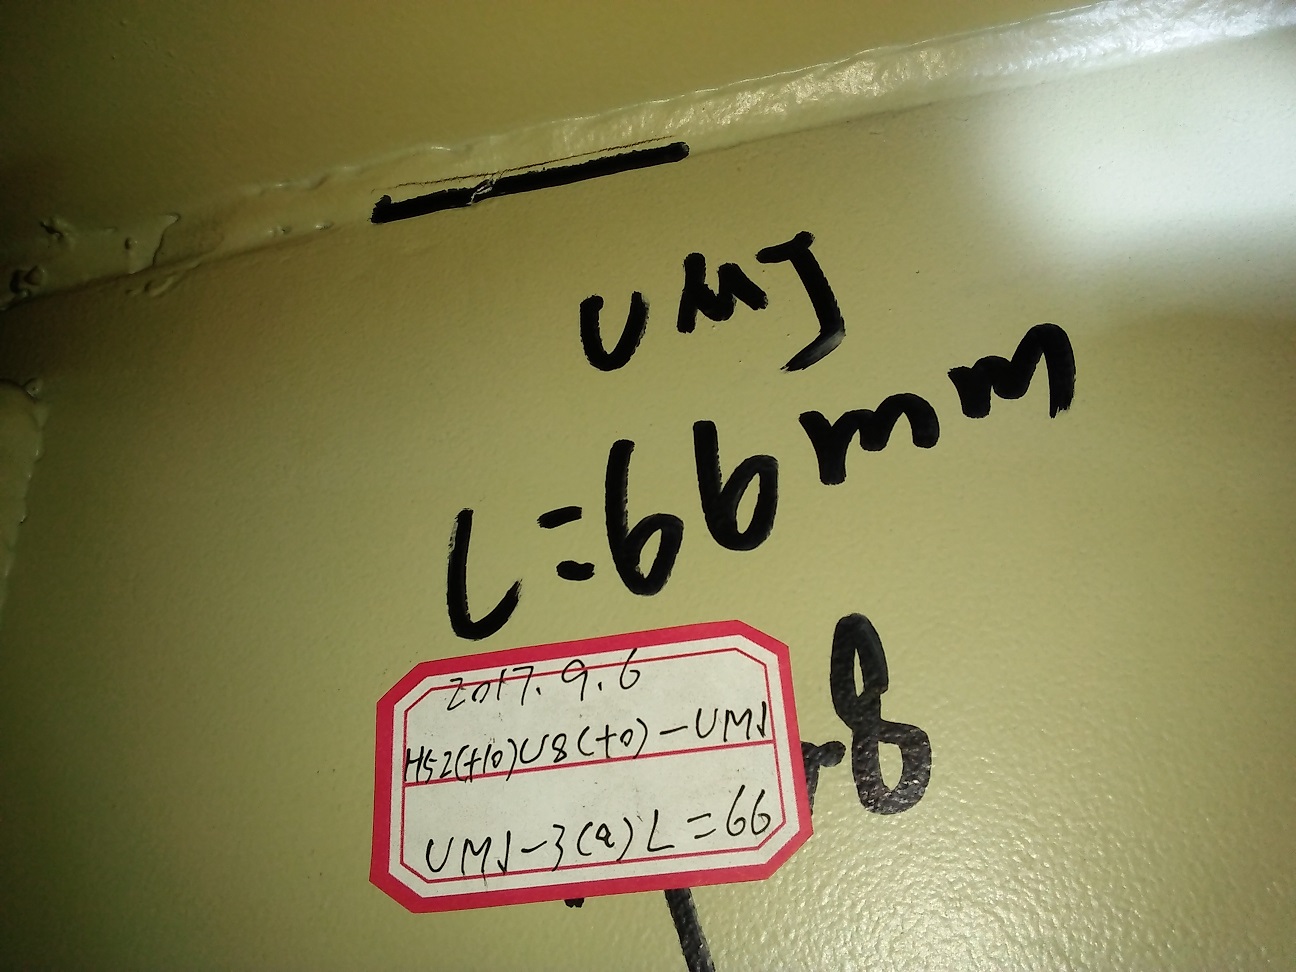 UMJ
L=66mm
-8
2017.9.6
HS2(+10)U8(+0)-UMJ
UMJ-3(a)L=66